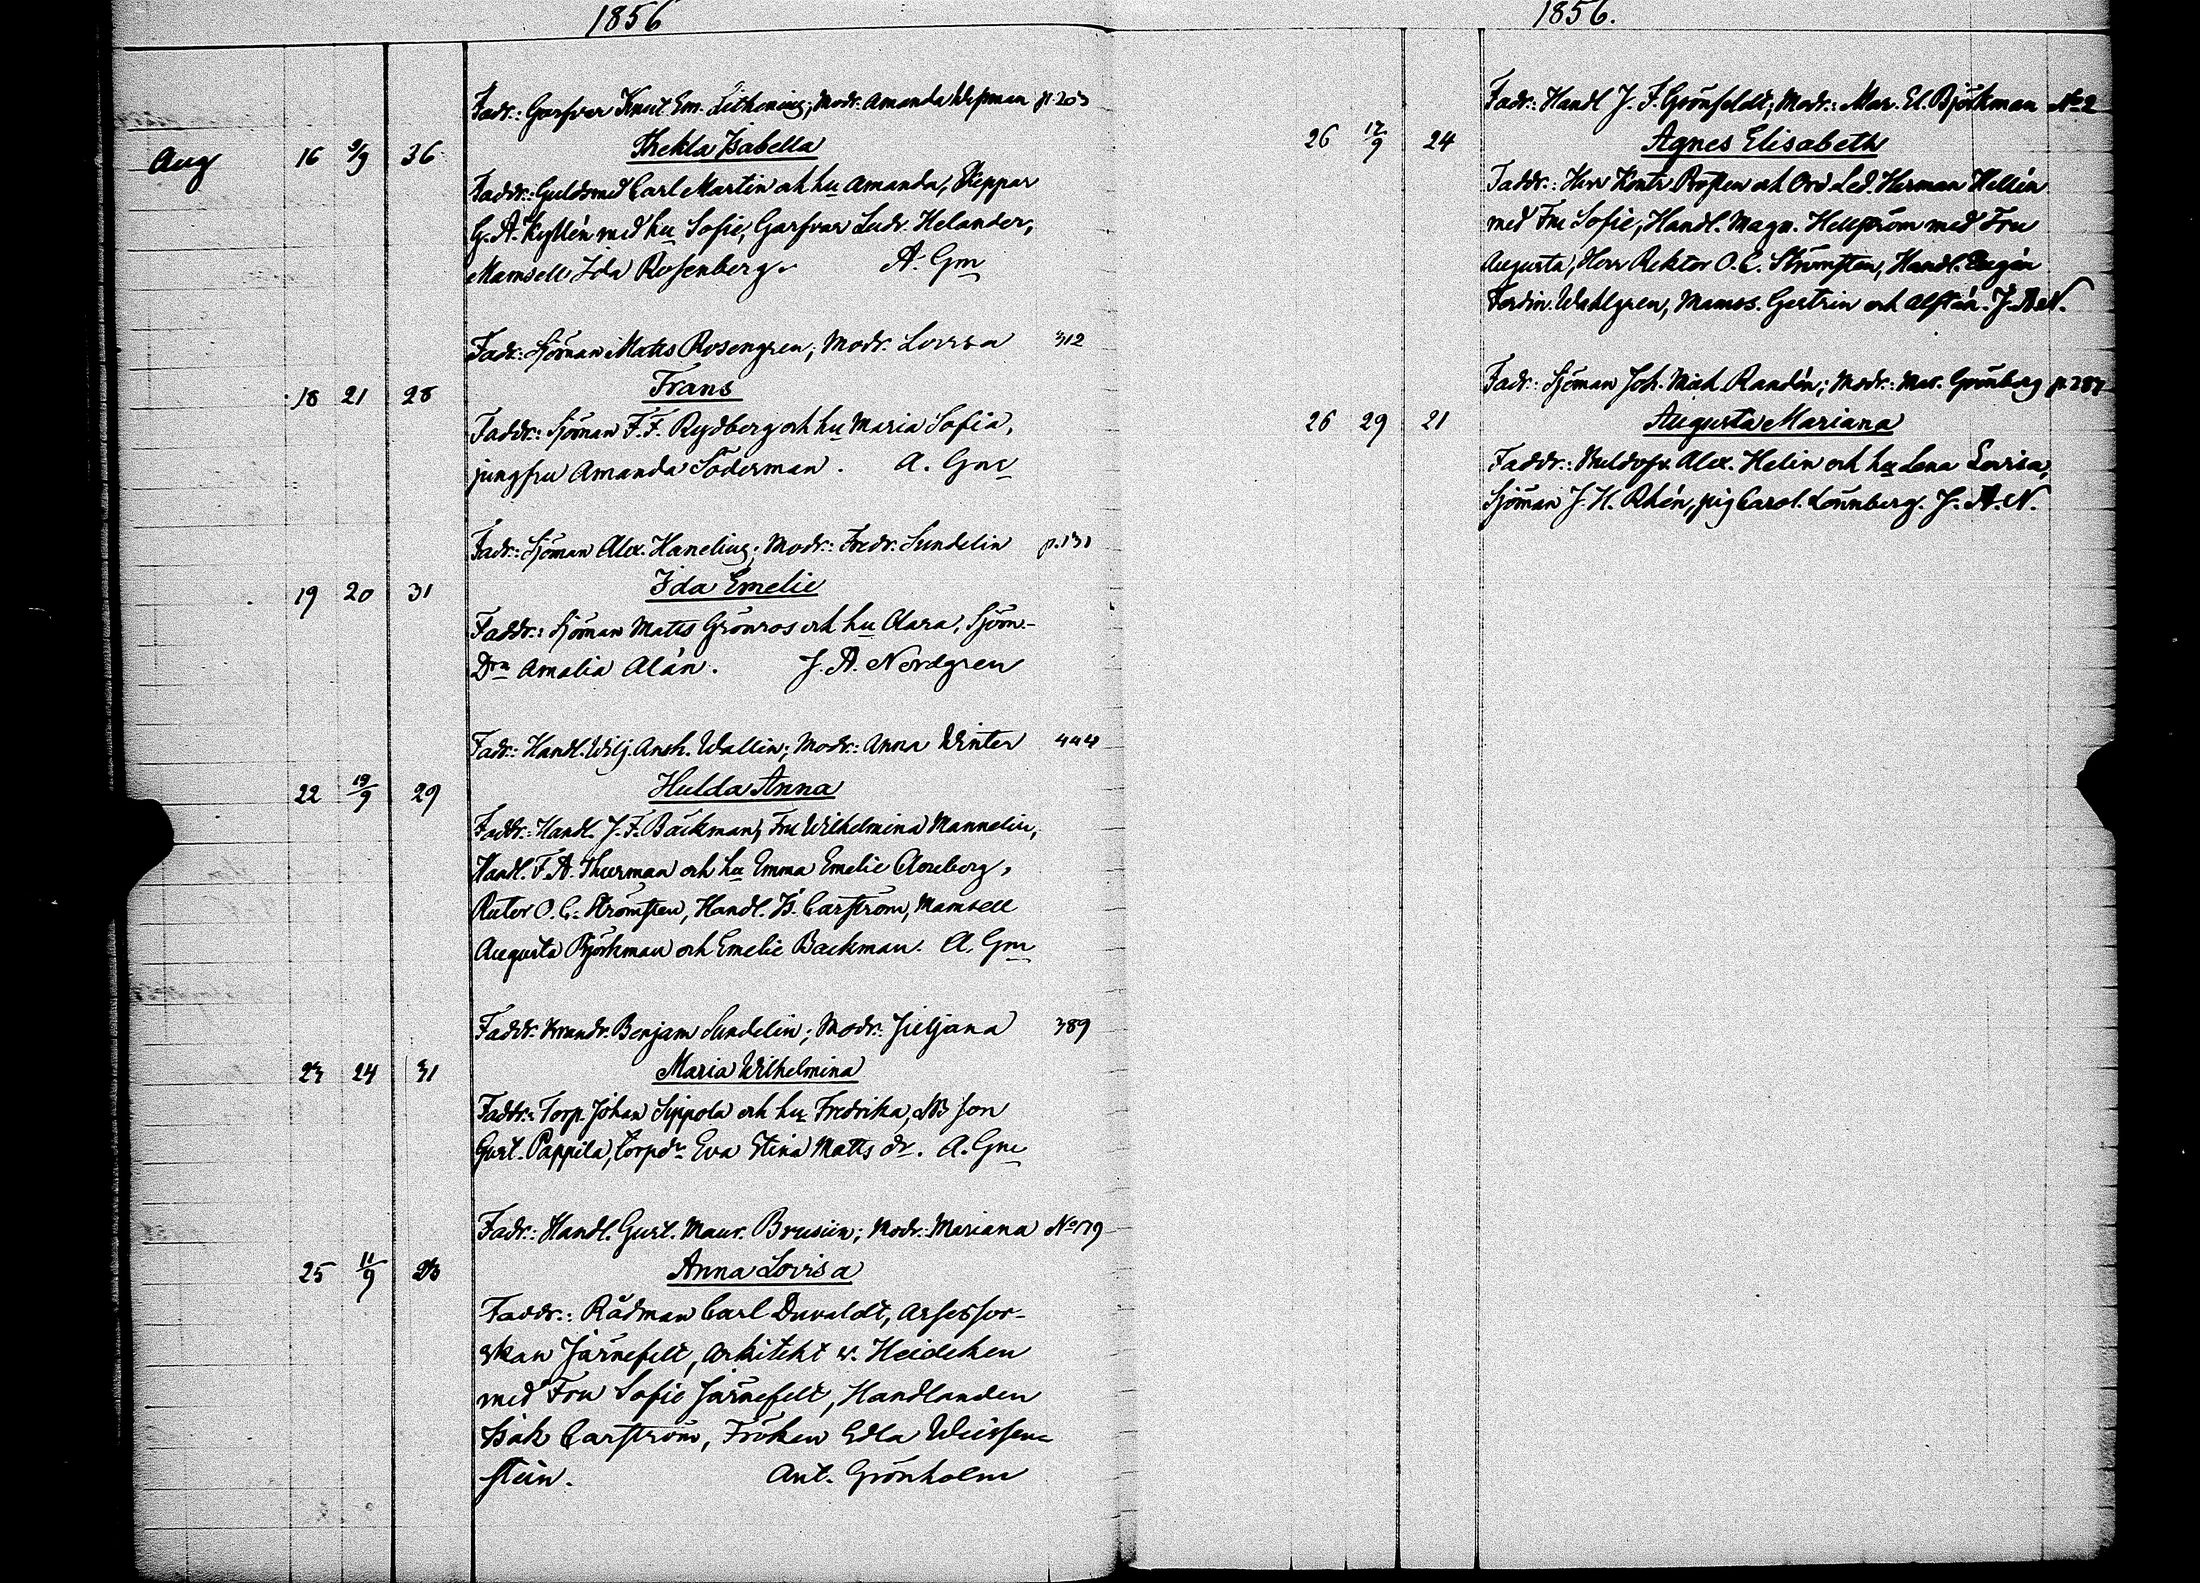 1856
Fadr: Garfvar Knut Em. Lithening; Modr: Amanda Wepman p. 203
Aug 16 9/9 36 Thekla Isabella
Faddr: Guldsmed Carl Martin och hu Amanda, Skeppar
G. A. Kyllén med hu Sofie, Garfvar Ludv. Helander,
Mamsell Ida Rosenberg. A. Gm
Fadr: Sjöman Matts Rosengren; Modr. Lovisa 312
18 21 28 Frans
Faddr: Sjöman F. F. Rydberg och hu Maria Sofia,
jungfru Amanda Söderman. A. Gm
Fadr: Sjöman Alex. Hanelius; Modr: Fredr. Sundelin p. 131
19 20 31 Ida Emelie
Faddr: Sjöman Matts Grönros och hu Clara, Sjöm-
Drn Amalia Alén. J. A. Nordgren
Fadr: Handl. Wilj. Ansh. Wallin; Modr: Anna Winter 444
22 19/9 29 Hulda Anna
Faddr: Handl. J. F. Bäckman, Fru Wilhelmina Mannelin,
Handl. F. A. Thurman och hu Emma Emelie Cloreberg,
Rector O. C. Strömsten, Handl. Is. Carström, Mamsell
Augusta Björkman och Emelie Backman. A. Gm
Faddr: Benjam Sundelin; Modr: Juljana 389
23 24 31 Maria Wilhelmina
Faddr: Torp. Johan Sippola och hu Fredrika, son
Gust. Pappila, torpdr Eva Stina Matts dr. A. Gm
Fadr: Handl. Gust. Maur. Brusiin; Modr: Mariana No 179
25 11/9 23 Anna Lovisa
Faddr: Rådman Carl Duvaldt, Assessor-
skan Järnefelt, Arkitekt v. Heideken
med Fru Sofie Järnefelt, Handlanden
Isak Carström, Fröken Edla Weissen-
stein. Ant. Grönholm
1856.
Fadr: Handl J. F. Grönfeldt; Modr: Mar. El. Björkman No 2
26 17/9 24 Agnes Elisabeth
Faddr: Herr Kontr Brosten och Ord Led. Herman Hellén
med Fru Sofie, Handl. Magn. Hellström med Fru
Augusta, Herr Rektor O. C. Strömsten, Handl. Eugén
Ferdin. Wahlgren, Mamss. Gertrin och Alftan. J. A. N.
Fadr: Sjöman Joh. Mich. Randén; Modr: Mar. Grönberg p. 287
26 29 21 Augusta Mariana
Faddr: Alex. Helin och hu Lena Lovisa,
Sjöman J. H. Rhén, pig Carol. Lönnberg. J. A. N.